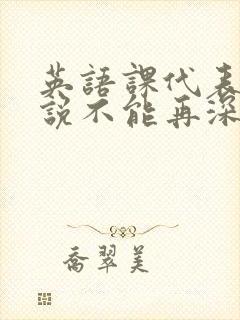 英語課代表
說不能再深
喬翠美